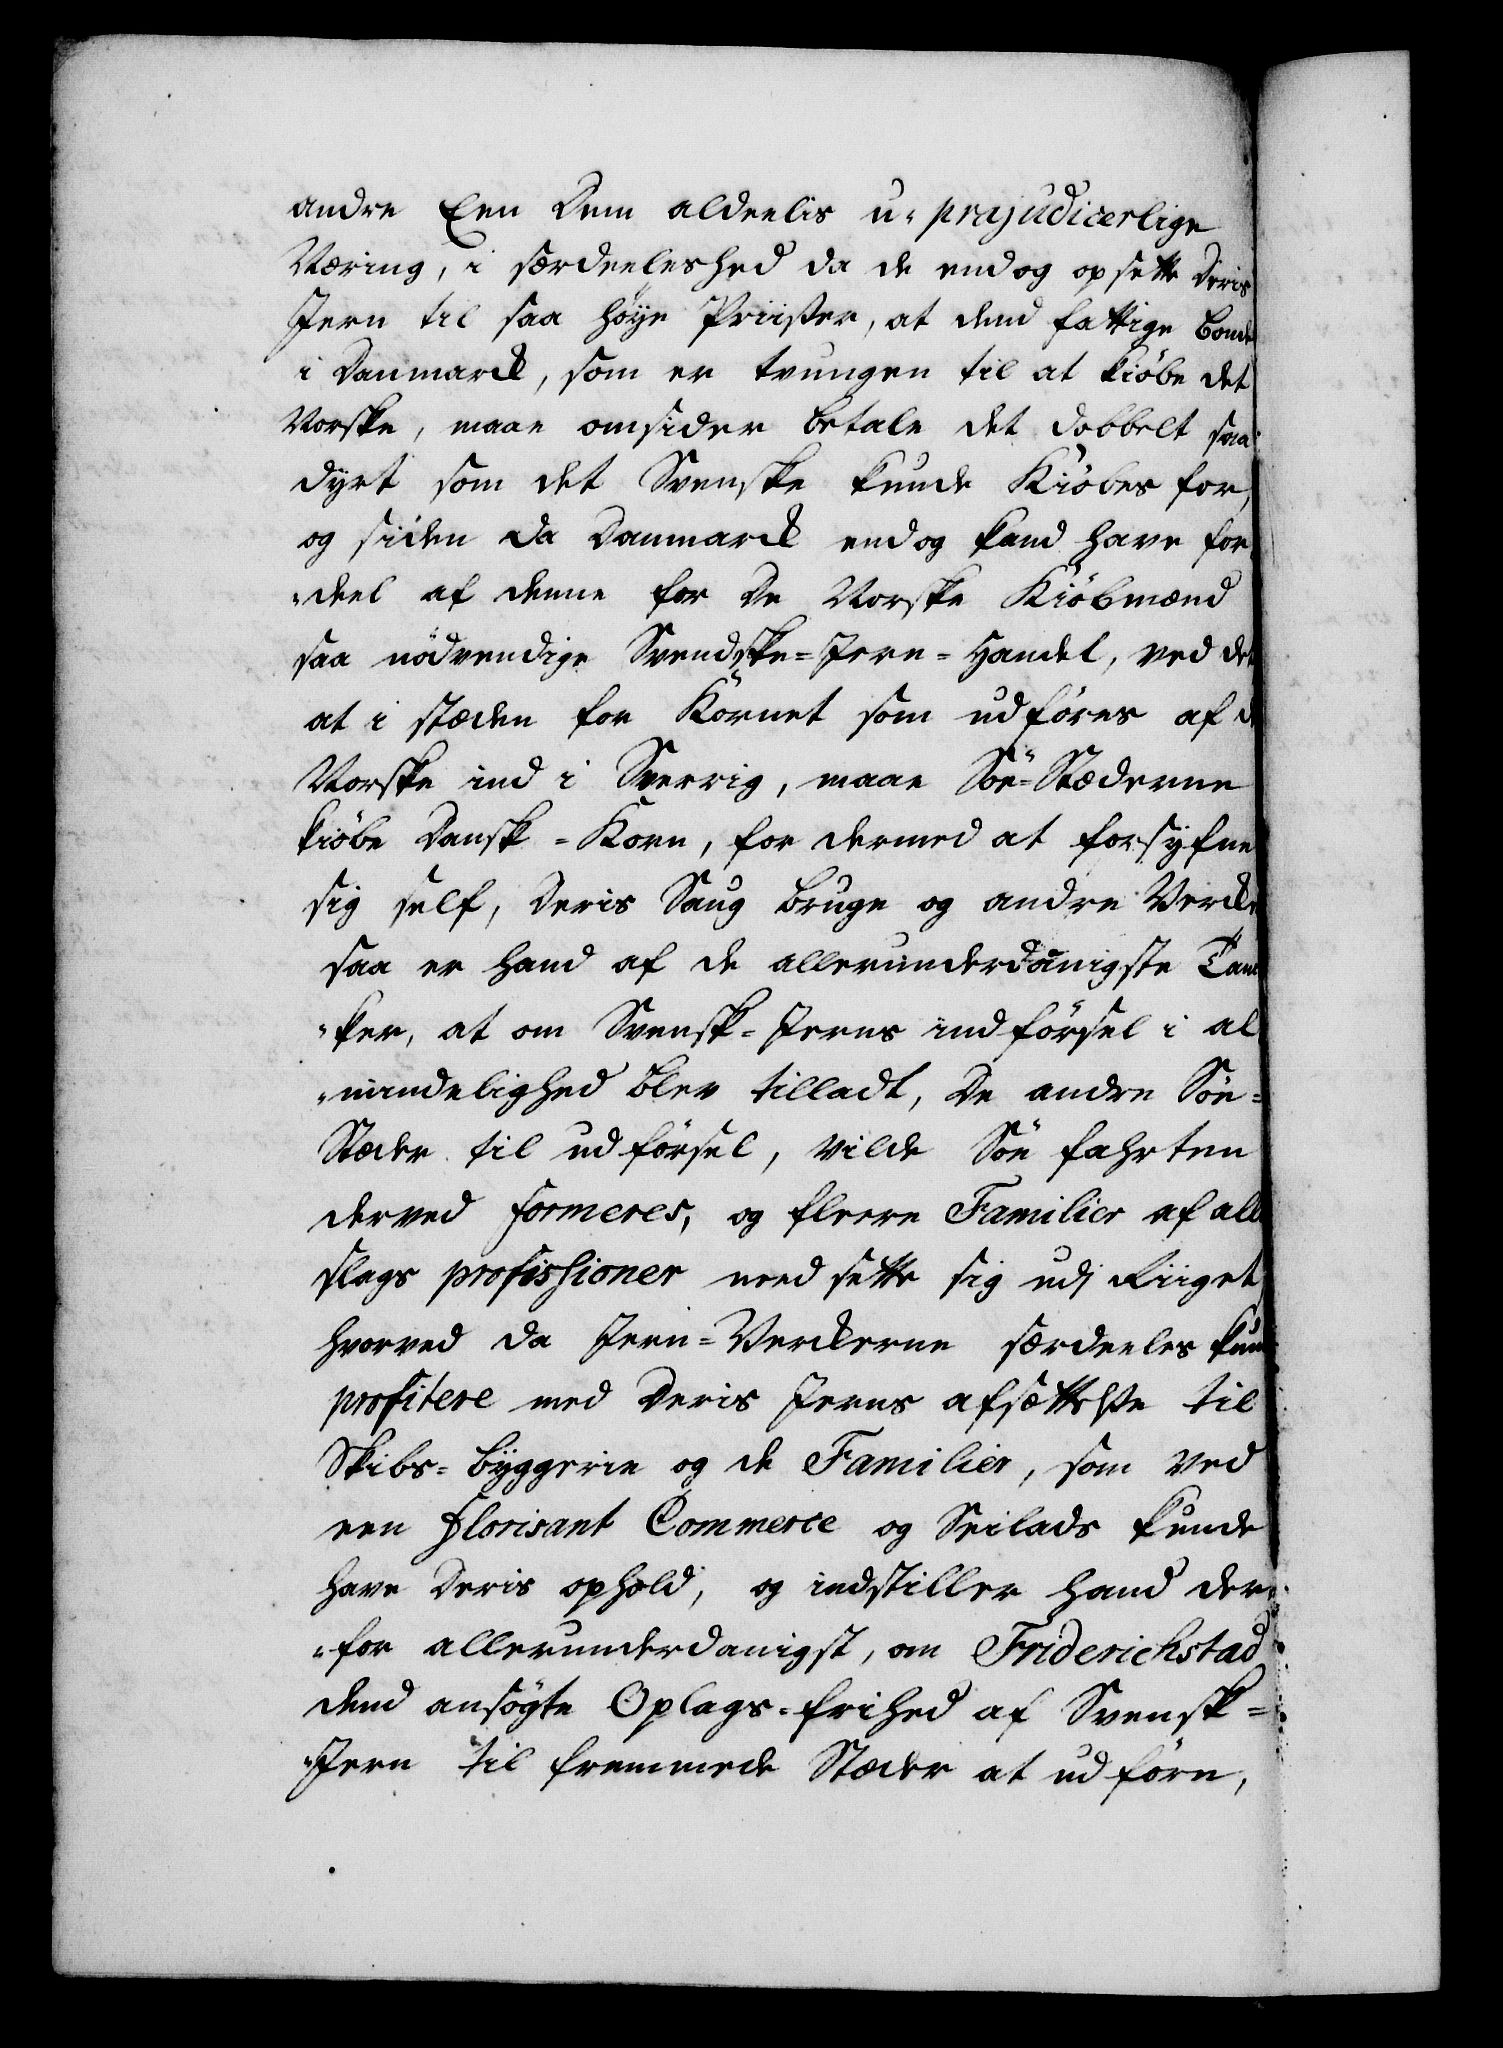 andre Een Dem aldeelis u-præjudicerlige
Næring, i særdeeleshed da de endog opsette Deris
Jern til saa høye Priißer, at dend fattige Bonde
i Danmarck, som er tvungen til at kiöbe det
Norske, maae omsider betale det dobbelt saa
dyrt som det Svenske kunde Kiöbes for,
og siden da Danmarck endog kand have for
„deel af denne for De Norske Kiöbmænd
saa nödvendige Svendske-Jern-Handel, ved det
at i stæden for Körnet som udföres af de
Norske ind i Sverrig, maae Söe-Stæderne
kiöbe Dansk-Korn, for dermed at forsyfne
sig self, Deris Saug bruge og andre Vercker
saa er hand af de allerunderdanigste Tan
„ker, at om Svensk-Jerns indförsel i al
„mindelighed blev tilladt, De andre Söe-
Stæder til udförsel, vilde Söe fahrten
derved formeres, og fleere Familier af all
slags profissioner need sette sig udj Riiget,
hvorved da Jern-Verckerne særdeeles kund
profitere med Deris Jerns afsættelße til
Skibs-byggerie og de Familier, som ved
een florisant Commerce og Seilads kunde
have Deris ophold, og indstiller hand der
„for allerunderdanigst, om Friderichstad
dend ansögte Oplags-frihed af Svensk-
Jern til fremmede Stæder at udföre,